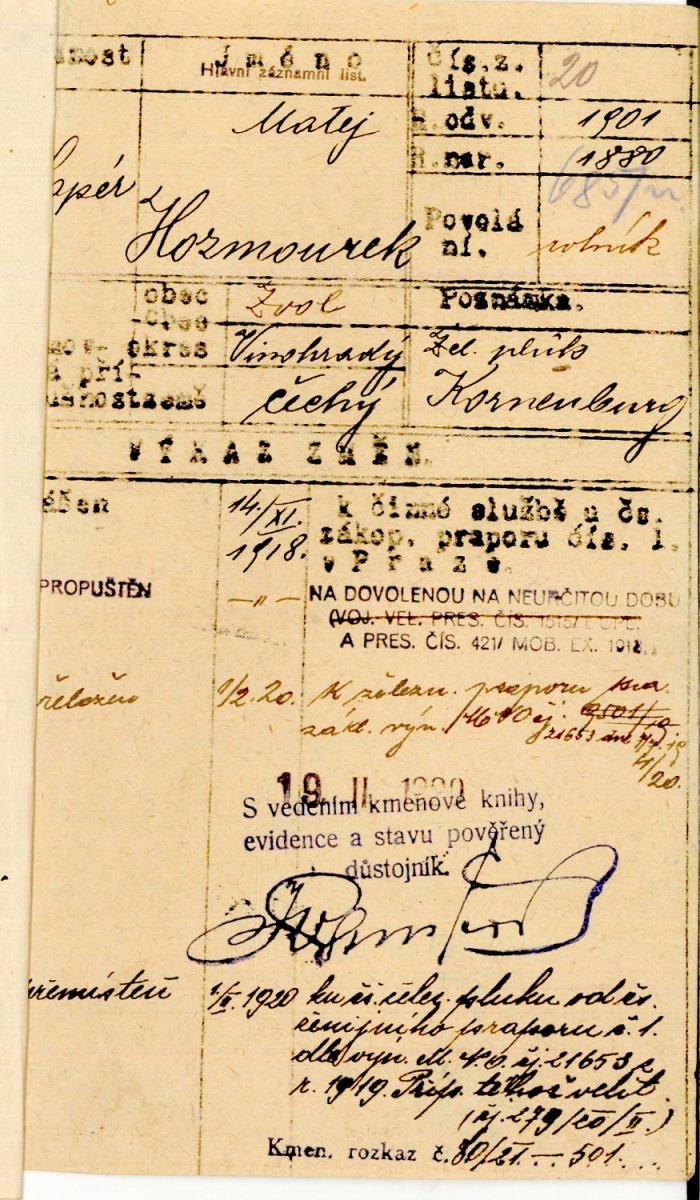 nost Jméno čís.z. 20
Hlavní záznamní list. listu.
Matěj R.odv. 1901
R.nar. 1880
apér 685/
Hozmourek Povolá
ní. rolník
obec Zvol Poznámka.
okres Vinohrady Žel. pluk
a pří-
země čechy Kornenburg
VÝKAZ ZMĚN.
14./XI. 1918. k činné službě u čs.
zákop. praporu čís. 1.
v Praze.
PROPUŠTĚN —„— NA DOVOLENOU NA NEURČITOU DOBU
(VOJ. VEL. PRES. ČÍS.
A PRES. ČÍS. 421/ MOB. EX. 1918.
řeložen 1/2.20. K železn. praporu na
zákl. výn. čj. 9501/19
21653 dne
4/20.
19 II 1920
S vedením kmenové knihy,
evidence a stavu pověřený
důstojník.
řemístěn 1/II.1920 ku čs. želez. pluku od čs.
ženijního praporu č. 1.
dle výn. M.N.O. čj. 21653 z
r. 1919. Příp. téhož velit.
(čj. 279/20/II.)
Kmen. rozkaz č. 80/21. — 501.